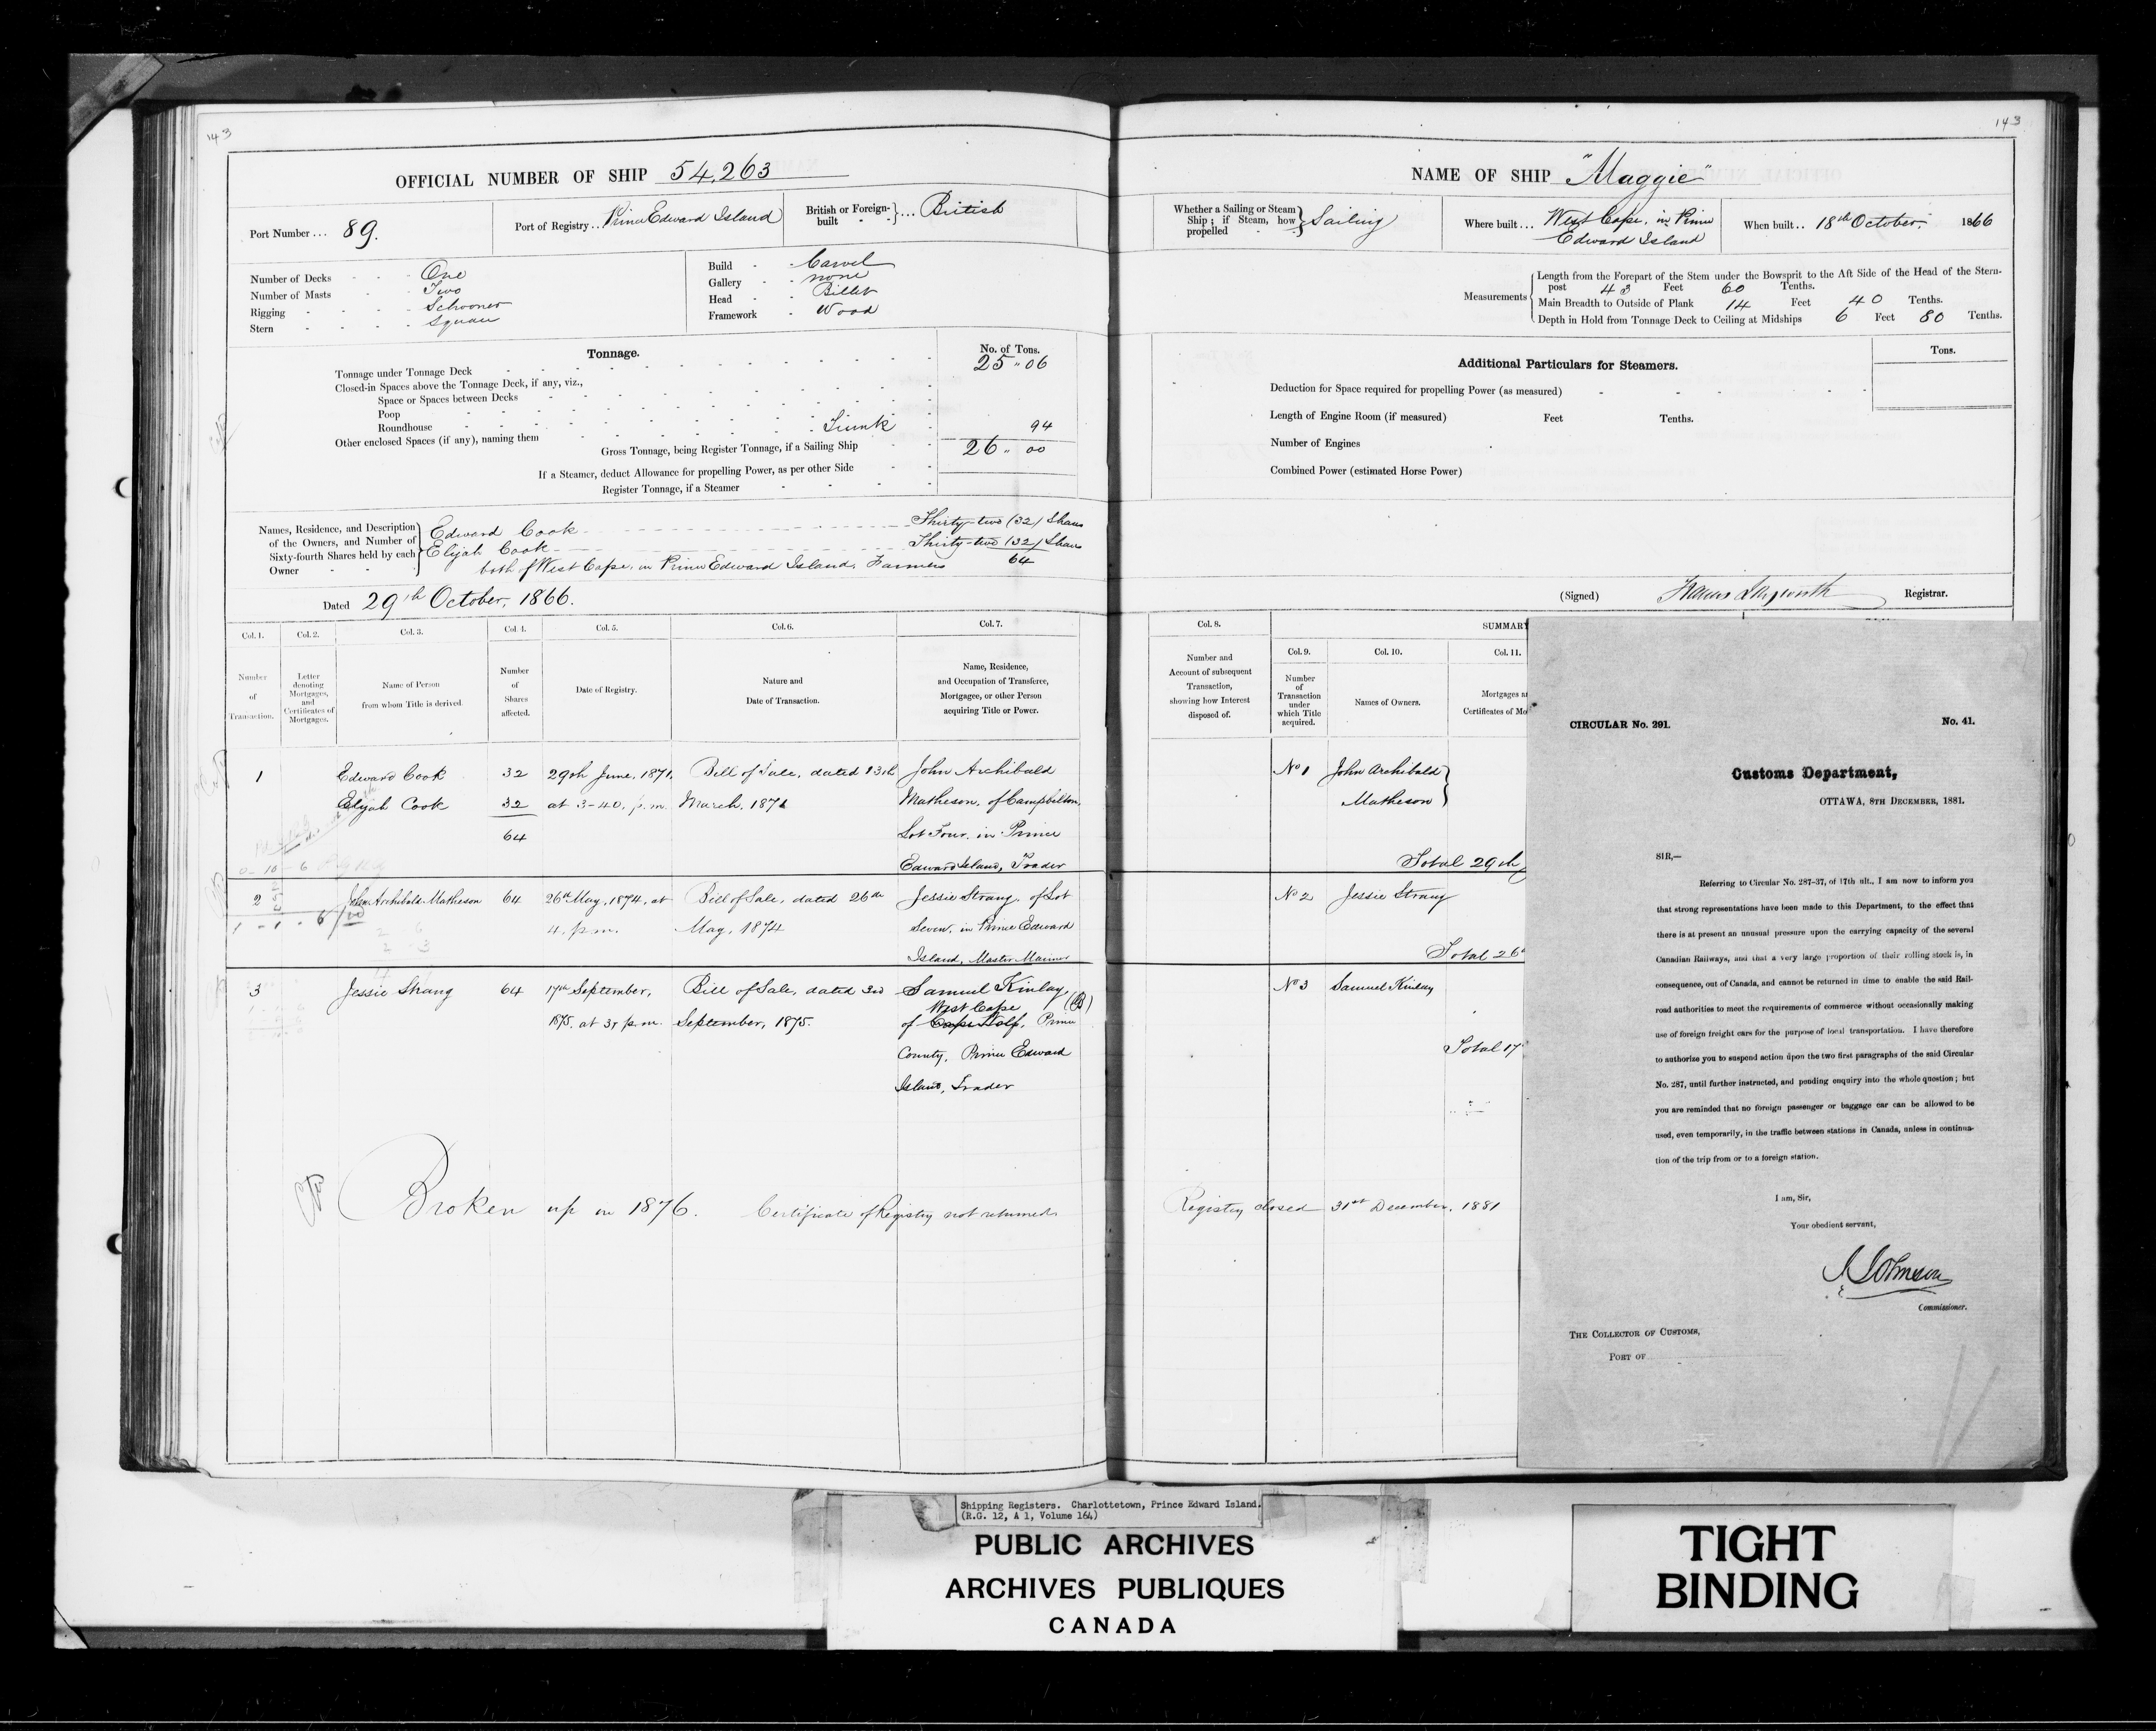 143
OFFICIAL NUMBER OF SHIP 54,263
Port Number ... 89.
Port of Registry .. Prince Edward Island
British or Foreign-built } ... British
Number of Decks - - - One
Number of Masts - - Two
Rigging - - - - Schooner
Stern - - - - Square
Build - - Carvel
Gallery - - none
Head - - Billet
Framework - Wood
Tonnage.
No. of Tons.
Tonnage under Tonnage Deck 25 " 06
Closed-in Spaces above the Tonnage Deck, if any, viz.,
Space or Spaces between Decks
Poop
Roundhouse
Other enclosed Spaces (if any), naming them Trunk 94
Gross Tonnage, being Register Tonnage, if a Sailing Ship 26 " 00
If a Steamer, deduct Allowance for propelling Power, as per other Side
Register Tonnage, if a Steamer
Names, Residence, and Description of the Owners, and Number of Sixty-fourth Shares held by each Owner
Edward Cook Thirty-two (32) Shares
Elijah Cook Thirty-two (32) Shares
both of West Cape, in Prince Edward Island, Farmers 64
Dated 29th October, 1866.
Col. 1. Col. 2. Col. 3. Col. 4. Col. 5. Col. 6. Col. 7.
Number of Transaction.
Letter denoting Mortgages, and Certificates of Mortgages.
Name of Person from whom Title is derived.
Number of Shares affected.
Date of Registry.
Nature and Date of Transaction.
Name, Residence, and Occupation of Transferee, Mortgagee, or other Person acquiring Title or Power.
1 Edward Cook 32 29th June, 1871, Bill of Sale, dated 13th John Archibald
Elijah Cook 32 at 3-40. p.m. March, 1871 Matheson, of Campbelton,
64 Lot Four, in Prince
0 - 10 - 6 Edward Island, Trader
2 John Archibald Matheson 64 26th May, 1874, at Bill of Sale, dated 26th Jessie Strang, of Lot
1 - 1 - 6 4. p.m. May, 1874 Seven, in Prince Edward
Island, Master Mariner
3 Jessie Strang 64 17th September, Bill of Sale, dated 3rd Samuel Kinlay,
West Cape (B)
1875, at 3, p.m. September, 1875. of Cape Wolf, Prince
County, Prince Edward
Island, Trader
Broken up in 1876. Certificate of Registry not returned.
143
NAME OF SHIP "Maggie"
Whether a Sailing or Steam Ship; if Steam, how propelled } Sailing
Where built ... West Cape, in Prince Edward Island
When built .. 18th October, 1866
Measurements
Length from the Forepart of the Stem under the Bowsprit to the Aft Side of the Head of the Stern-
post 43 Feet 60 Tenths.
Main Breadth to Outside of Plank 14 Feet 40 Tenths.
Depth in Hold from Tonnage Deck to Ceiling at Midships 6 Feet 80 Tenths.
Additional Particulars for Steamers.
Tons.
Deduction for Space required for propelling Power (as measured)
Length of Engine Room (if measured) Feet Tenths.
Number of Engines
Combined Power (estimated Horse Power)
(Signed) Francis Longworth Registrar.
Col. 8. SUMMARY
Col. 9. Col. 10. Col. 11.
Number and Account of subsequent Transaction, showing how Interest disposed of.
Number of Transaction under which Title acquired.
Names of Owners.
Mortgages a
Certificates of Mo
No 1 John Archibald
Matheson
Total 29th
No 2 Jessie Strang
Total 26
No 3 Samuel Kinlay
Total 17
Registry closed 31st December, 1881
CIRCULAR No. 291. No. 41.
Customs Department,
OTTAWA, 8TH DECEMBER, 1881.
SIR,—
Referring to Circular No. 287-37, of 17th ult., I am now to inform you
that strong representations have been made to this Department, to the effect that
there is at present an unusual pressure upon the carrying capacity of the several
Canadian Railways, and that a very large proportion of their rolling stock is, in
consequence, out of Canada, and cannot be returned in time to enable the said Rail-
road authorities to meet the requirements of commerce without occasionally making
use of foreign freight cars for the purpose of local transportation. I have therefore
to authorize you to suspend action upon the two first paragraphs of the said Circular
No. 287, until further instructed, and pending enquiry into the whole question; but
you are reminded that no foreign passenger or baggage car can be allowed to be
used, even temporarily, in the traffic between stations in Canada, unless in continua-
tion of the trip from or to a foreign station.
I am, Sir,
Your obedient servant,
J Johnson
Commissioner.
THE COLLECTOR OF CUSTOMS,
PORT OF
Shipping Registers. Charlottetown, Prince Edward Island.
(R.G. 12, A 1, Volume 164)
PUBLIC ARCHIVES
ARCHIVES PUBLIQUES
CANADA
TIGHT
BINDING